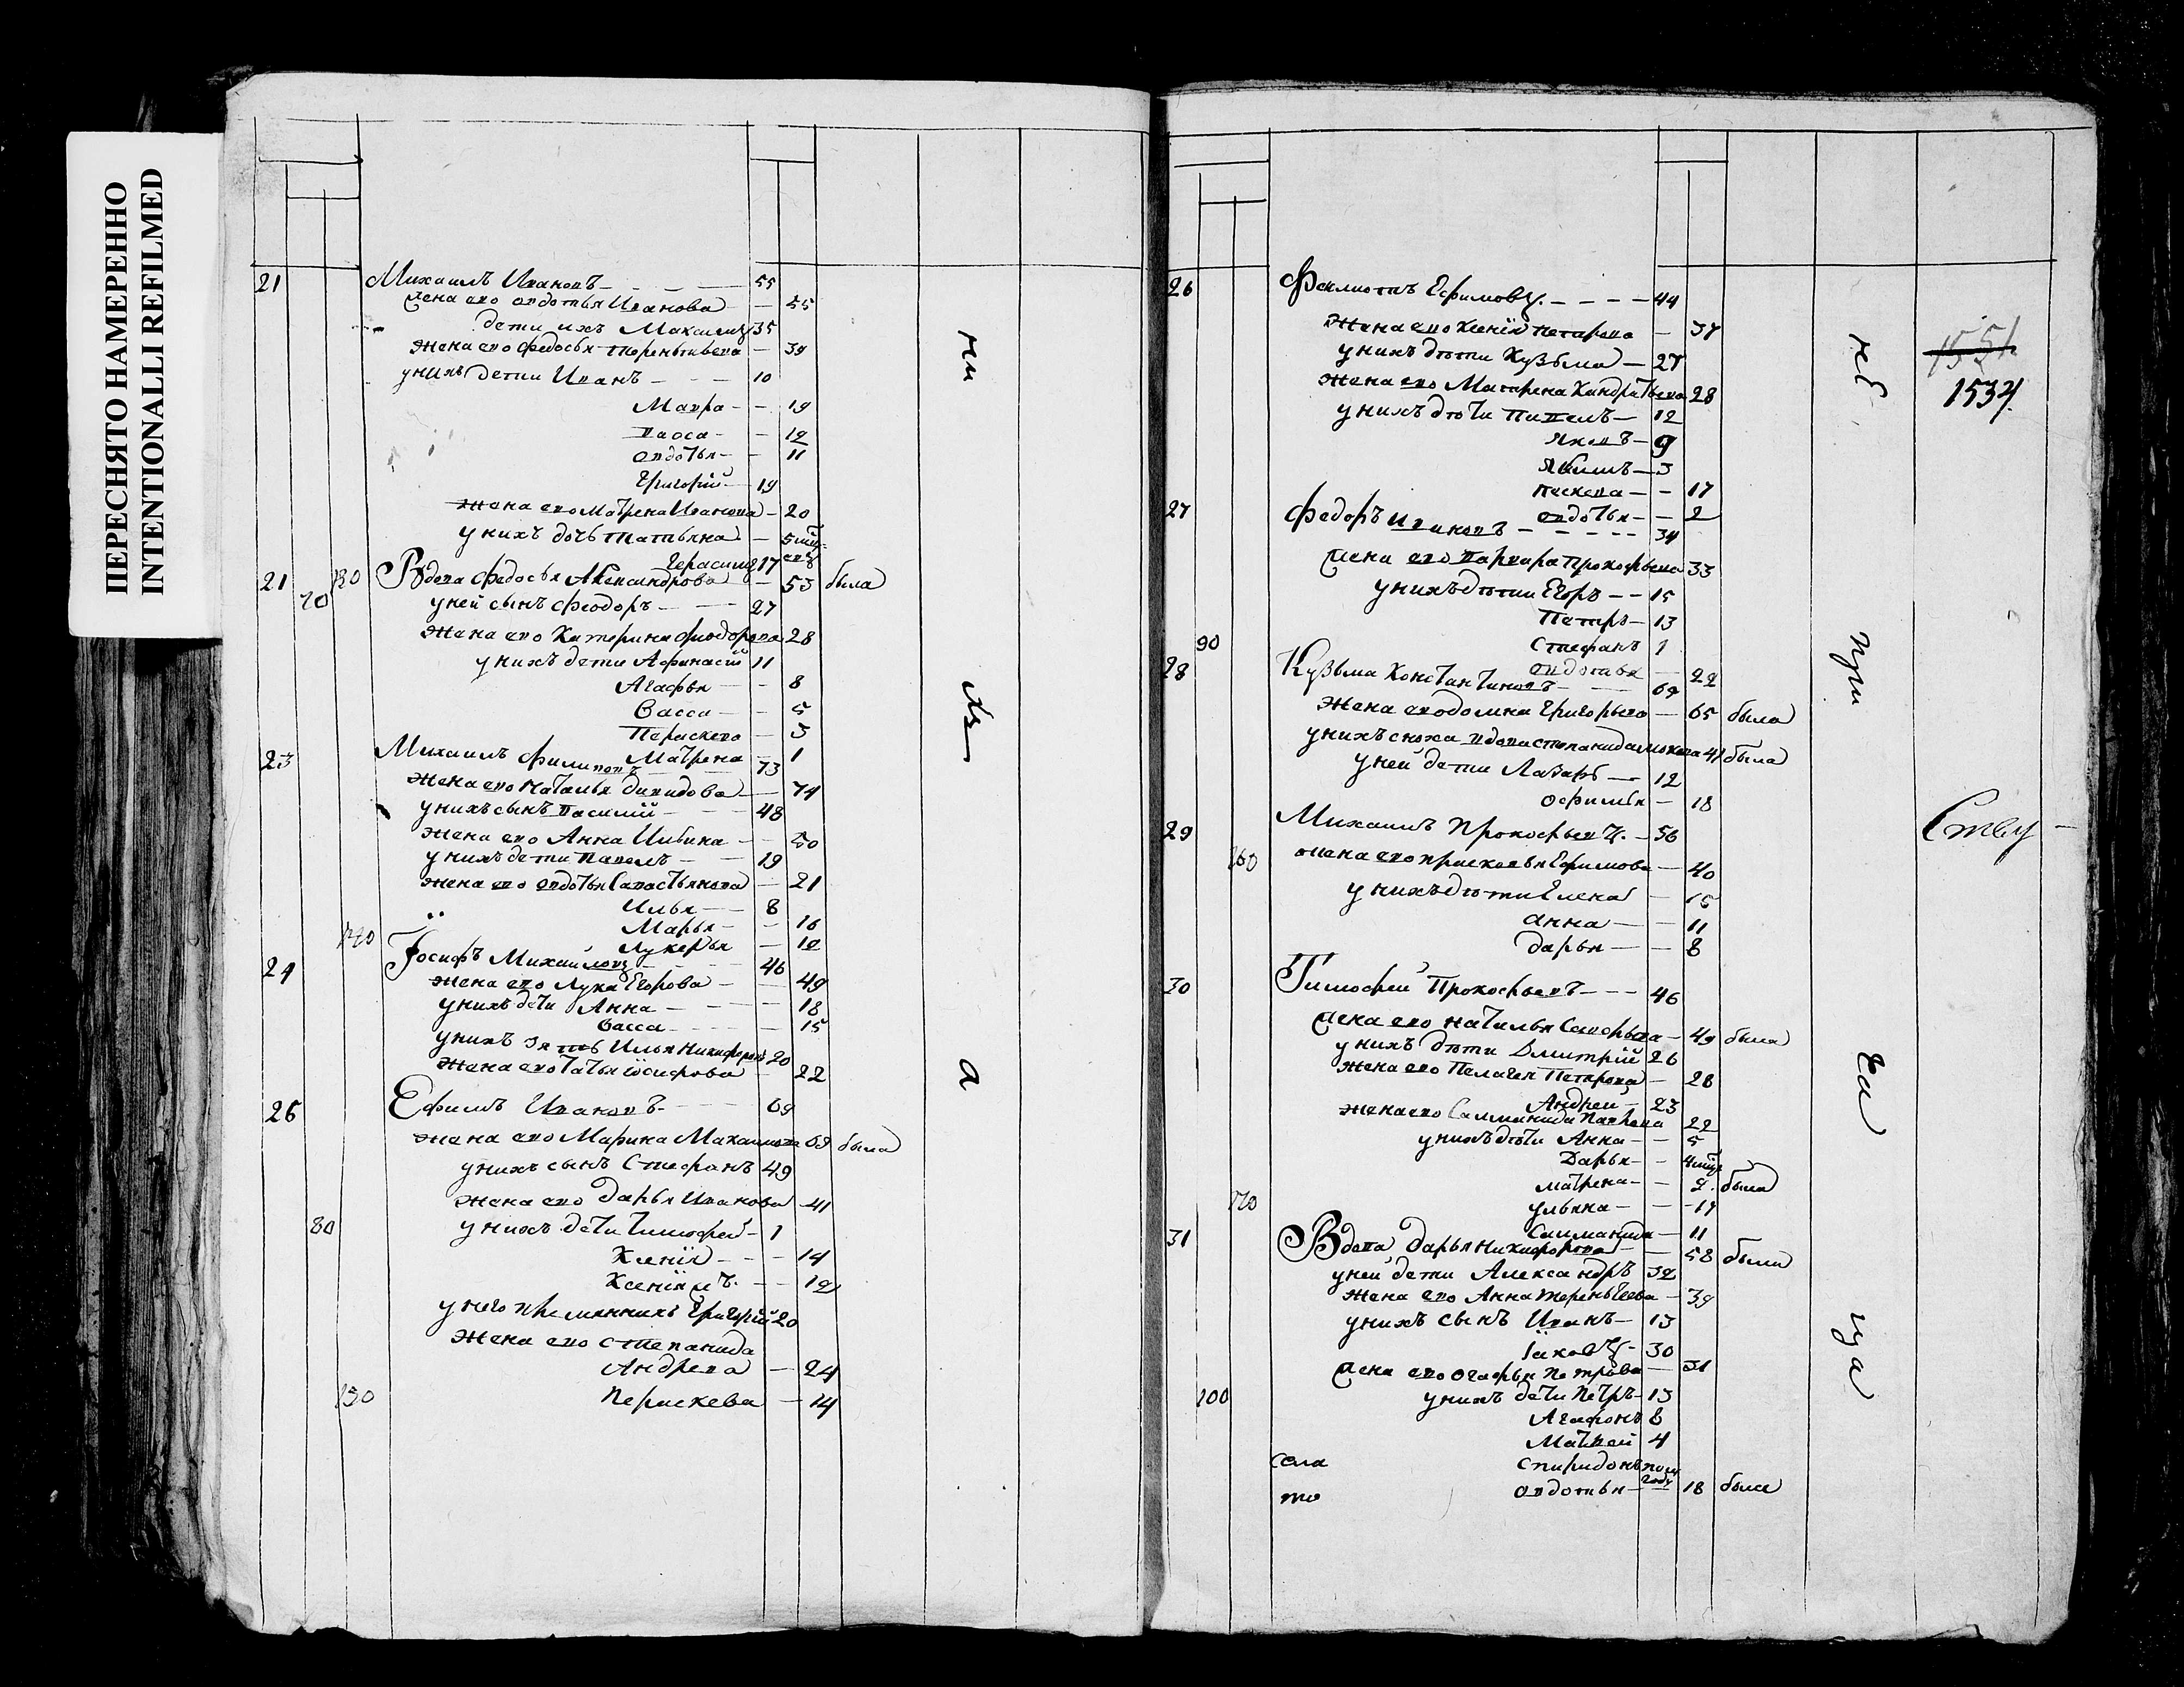 ПЕРЕСНЯТО НАМЕРЕННО
INTENTIONALLI REFILMED
21 Михаилъ Ивановъ 55
жена ево Овдотья Иванова 55
дети ихъ Максимъ 35
жена ево Федосья Терентьева 39
у нихъ дети Иванъ 10
Мавра 19
Васса 12
Овдотья 11
Григорій 19
жена ево Матрена Иванова 20
у нихъ дочь Татьяна 5
Герасимъ 17
21 70 130 Вдова Федосья Александрова 53 была
у ней сынъ Феодоръ 27
жена ево Катерина Феодорова 28
у нихъ дети Афанасій 11
Агафья 8
Васса 5
Параскева 3
Матрена 1
23 Михаилъ Филиповъ 73
жена ево Наталья Давидова 74
у нихъ сынъ Василій 48
жена ево Анна 50
у нихъ дети Павелъ 19
жена ево Овдотья Савастьянова 21
Илья 8
Марья 16
Лукерья 12
24 Іосифъ Михайловъ 46
жена ево Лукія Егорова 49
у нихъ дети Анна 18
Васса 15
у нихъ зять Илья Никифоровъ 20
жена ево Татья Іосифова 22
25 Ефимъ Ивановъ 69
жена ево Марина Максимова 69 была
у нихъ сынъ Стефанъ 49
жена ево Дарья Иванова 41
80 у нихъ дети Тимофей 1
Ксенія 14
Ксенія 12
у него племянникъ Григорій 20
жена ево Степанида
Андрева 24
Пераскева 14
ни
хъ
а
26 Филиппъ Ефимовъ 44
жена ево Ксенія Петрова 37
у нихъ дѣти Кузьма 27
жена ево Матрена Кандратьева 28
у нихъ дѣти Павелъ 12
Яковъ 9
Якимъ 3
17
Овдотья 2
27 Федоръ Ивановъ 34
жена ево Варвара Прокофьева 33
у нихъ дѣти Егоръ 15
Петръ 13
90 Стефанъ 1
Овдотья 22
28 Кузьма Константиновъ 69
жена ево Домна Григорьева 65 была
у нихъ сноха вдова Степанида 41 была
у ней дети Лазарь 12
Офимья 18
29 Михаилъ Прокофьевъ 56
160 жена ево Прасковья Ефимова 40
у нихъ дѣти Елена 15
Анна 11
Дарья 8
30 Тимофей Прокофьевъ 46
жена ево Наталья 49 была
у нихъ дѣти Дмитрій 26
жена ево Пелагея Петрова 28
Андрей 23
жена ево Саламанида 22
у нихъ дѣти Анна 5
Дарья 4
Матрена была
170 Ульяна
Саламанида 11
31 Вдова Дарья Никифорова 58 была
у ней дети Александръ 32
жена ево Анна Терентьева 39
у нихъ сынъ Иванъ 13
Іаковъ 30
жена ево Огафья Петрова 31
100 у нихъ дети Петръ 13
Агафонъ 8
Матвей 4
Спиридонъ полгоду
Овдотья 18 была
села
то
1551
1534
при
ча
ца